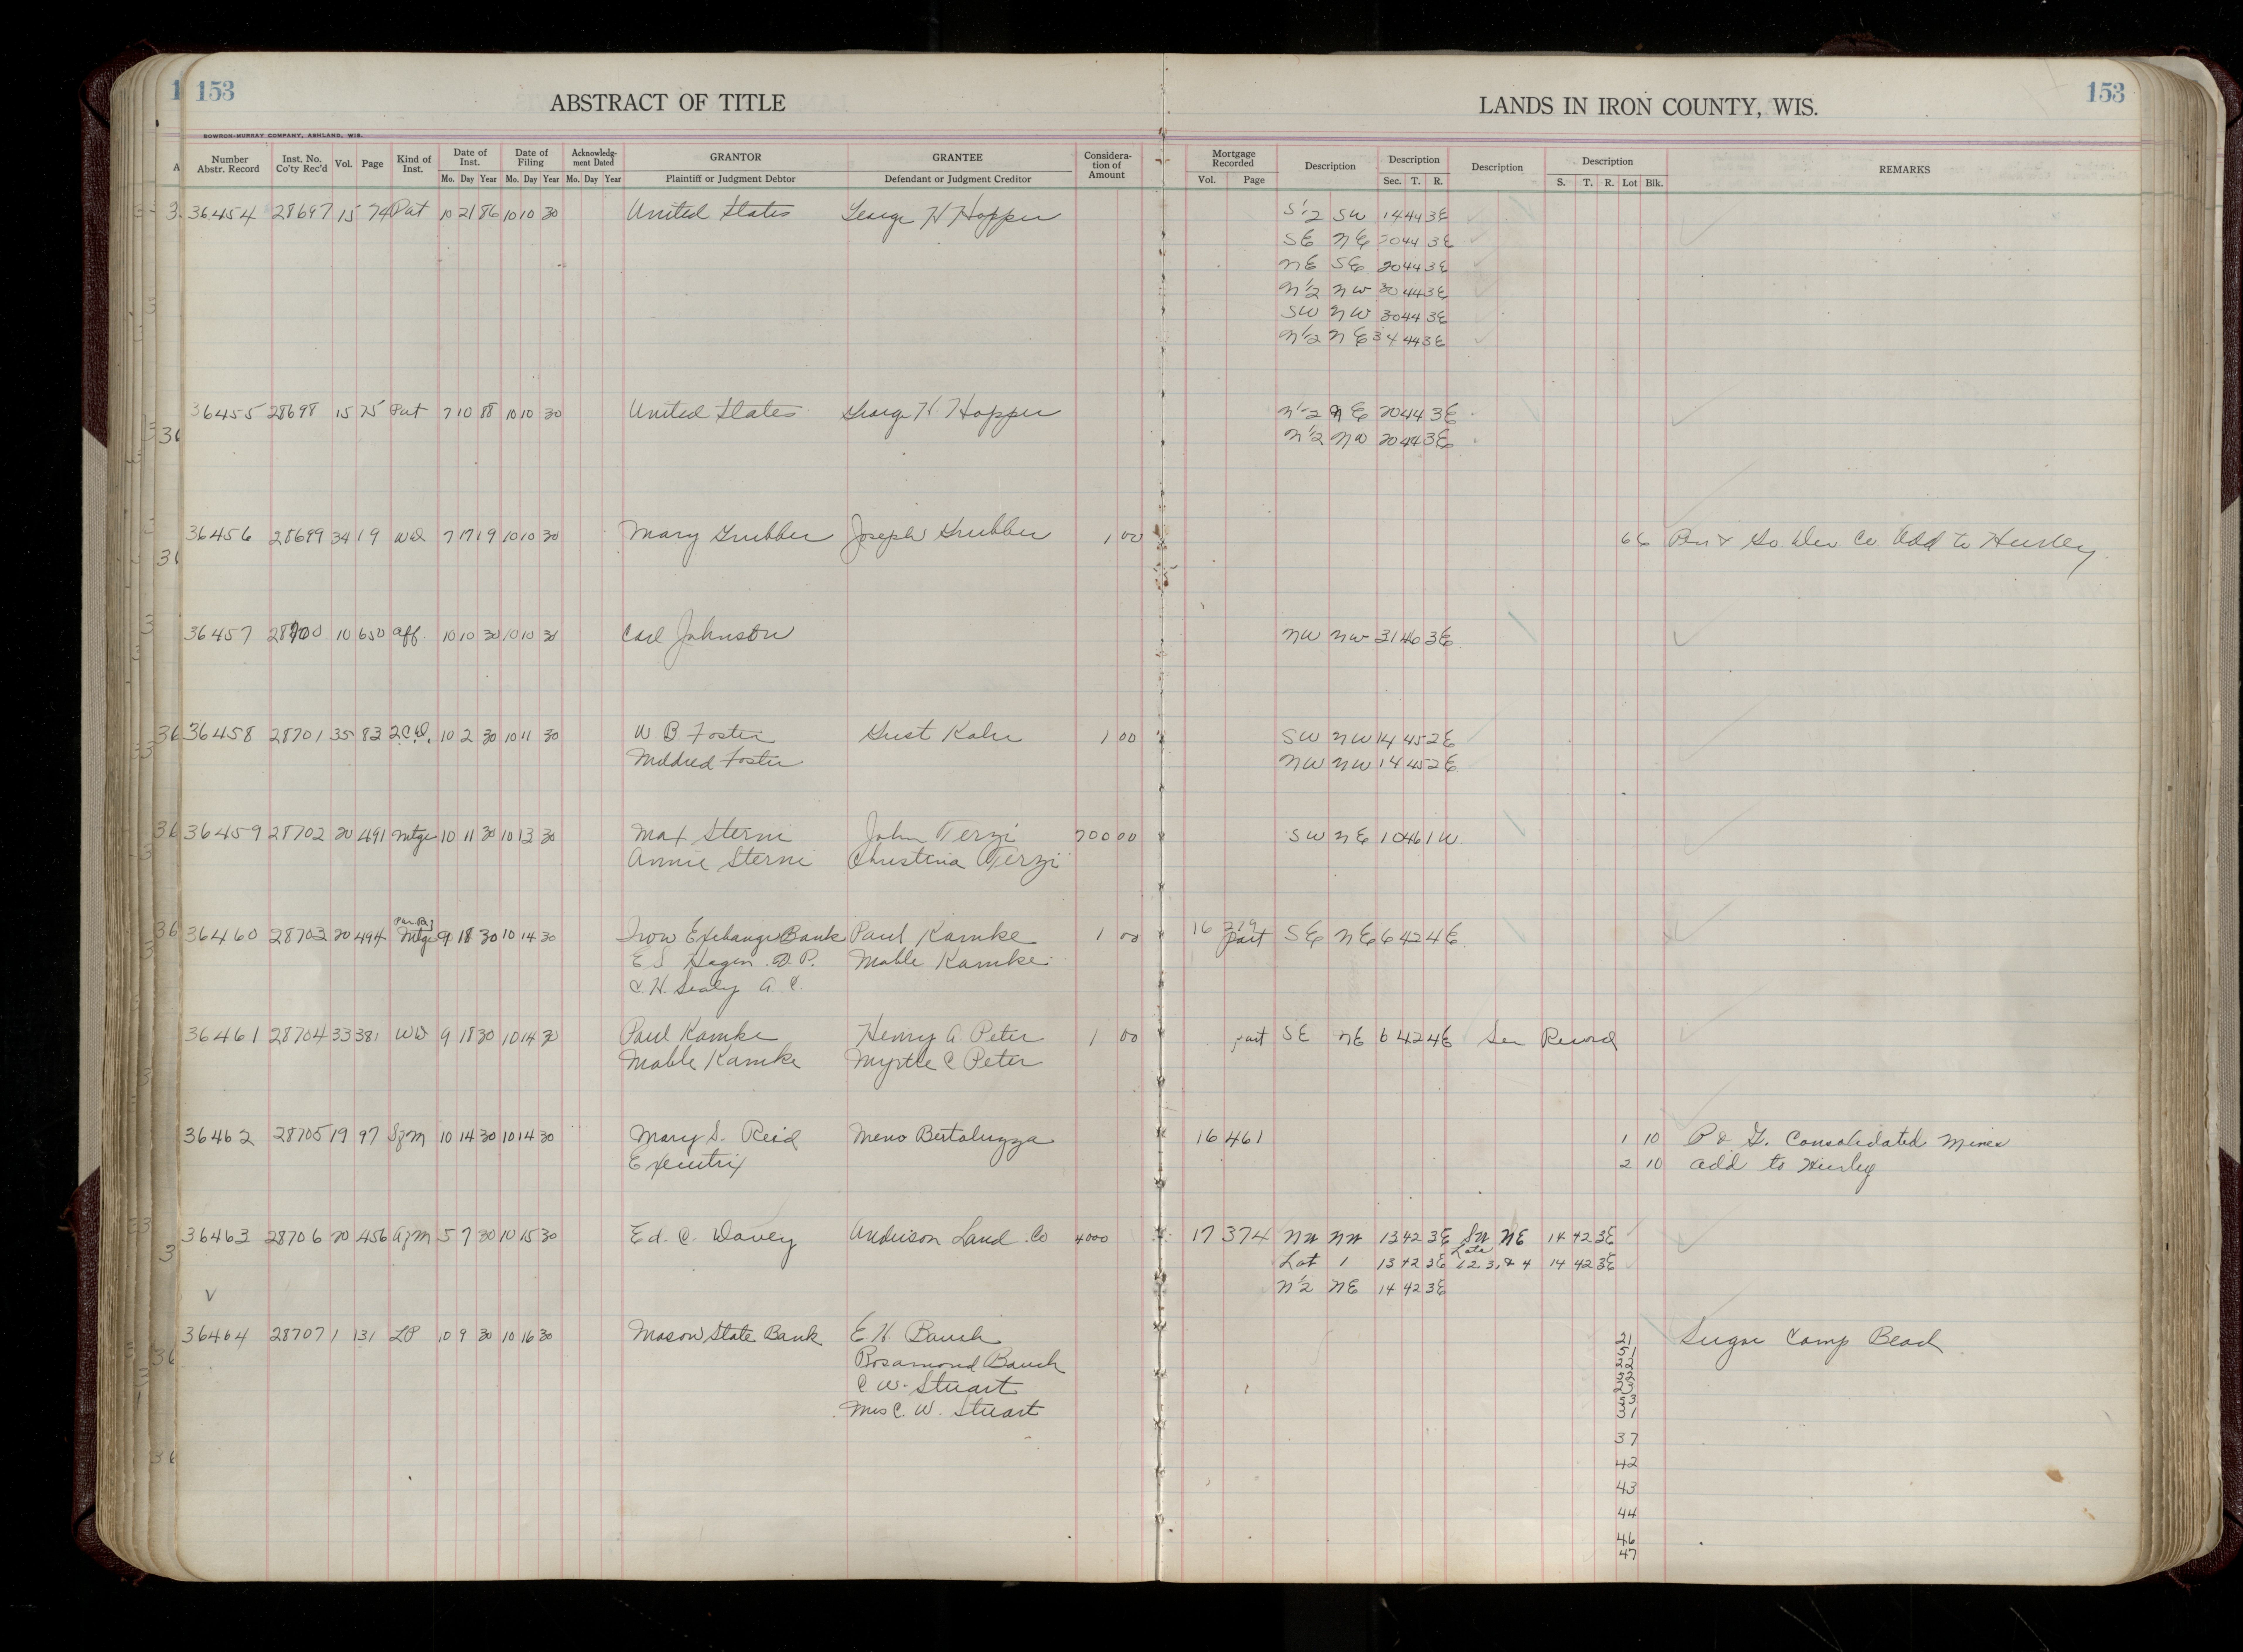 153
ABSTRACT OF TITLE
LANDS IN IRON COUNTY, WIS.
153
BOWRON-MURRAY COMPANY, ASHLAND, WIS.
Number Abstr. Record Inst. No. Co'ty Rec'd Vol. Page Kind of Inst. Date of Inst. Mo. Day Year Date of Filing Mo. Day Year Acknowledgment Dated Mo. Day Year GRANTOR Plaintiff or Judgment Debtor GRANTEE Defendant or Judgment Creditor Consideration of Amount Mortgage Recorded Vol. Page Description Description Sec. T. R. Description Description S. T. R. Lot Blk. REMARKS
36454 28697 15 74 Pat 10 21 86 10 10 30 United States George H Hopper S 1/2 SW 14 44 3E
SE NE 20 44 3E
NE SE 20 44 3E
N 1/2 NW 30 44 3E
SW NW 30 44 3E
N 1/2 NE 34 44 3E
36455 28698 15 75 Pat 7 10 88 10 10 30 United States George H. Hopper N 1/2 NE 20 44 3E
N 1/2 NW 20 44 3E
36456 28699 34 19 WD 7 17 19 10 10 30 Mary Grubber Joseph Grubber 1 00 6 6 Co Add to Hurley
36457 28700 10 650 Aff. 10 10 30 10 10 30 Carl Johnson NW NW 31 46 3E
36458 28701 35 83 2CD. 10 2 30 10 11 30 W B. Foster Gust Kahn 1 00 SW NW 14 45 2E
Mildred Foster NW NW 14 45 2E
36459 28702 20 491 Mtge 10 11 30 10 13 30 Max Sterni John Terzi 700 00 SW NE 10 46 1W
Annie Sterni Christina Terzi
36460 28703 20 494 Mtge 9 18 30 10 14 30 Iron Exchange Bank Paul Kamke 1 00 16 379 part SE NE 6 42 4E
E S Hagen V.P. Mable Kamke
C. H. Sealy A. C.
36461 28704 33 381 WD 9 18 30 10 14 30 Paul Kamke Henry A Peter 1 00 part SE NE 6 42 4E See Record
Mable Kamke Myrtle C Peter
36462 28705 19 97 Sfm 10 14 30 10 14 30 Mary S. Reid Meno Bertoluzza 16 461 1 10 P & G. Consolidated Mines
Executrix 2 10 add to Hurley
36463 28706 20 456 Agm 5 7 30 10 15 30 Ed. C. Davey Anderson Land Co 4000 17 374 NW NW 13 42 3E SW NE 14 42 3E
Lot 1 13 42 3E Lots 1 2. 3, & 4 14 42 3E
N 1/2 NE 14 42 3E
36464 28707 1 131 LP 10 9 30 10 16 30 Mason State Bank E H Bauch 21 Sugar Camp Beach
51
Rosamond Bauch 22
52
C W. Stuart 23
53
Mrs C. W. Stuart 31
37
42
43
44
46
47